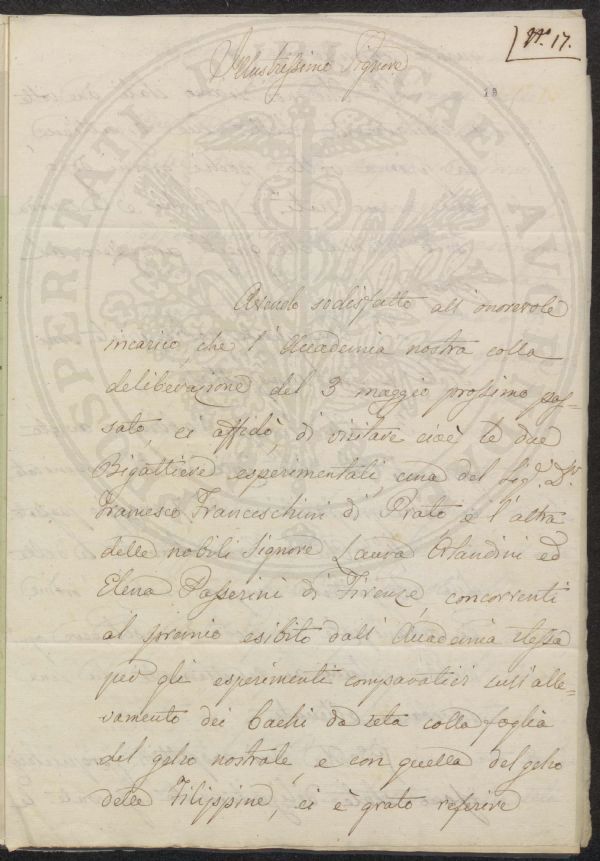 N.° 17.
Illustrissimo Signore
19
Avendo sodisfatto all'onorevole
incarico, che l'Accademia nostra colla
deliberazione del 3 maggio prossimo pas=
sato, ci affidò, di visitare cioè le due
Bigattiere esperimentali, una del Sig.r D.r
Francesco Franceschini di Prato e l'altra
delle nobili Signore Laura Orlandini ed
Elena Passerini di Firenze, concorrenti
al premio esibito dall'Accademia stessa
per gli esperimenti comparativi sull'alle=
vamento dei bachi da seta colla foglia
del gelso nostrale, e con quella del gelso
delle Filippine, ci è grato referire
PROSPERITATI PUBLICAE AUGENDAE